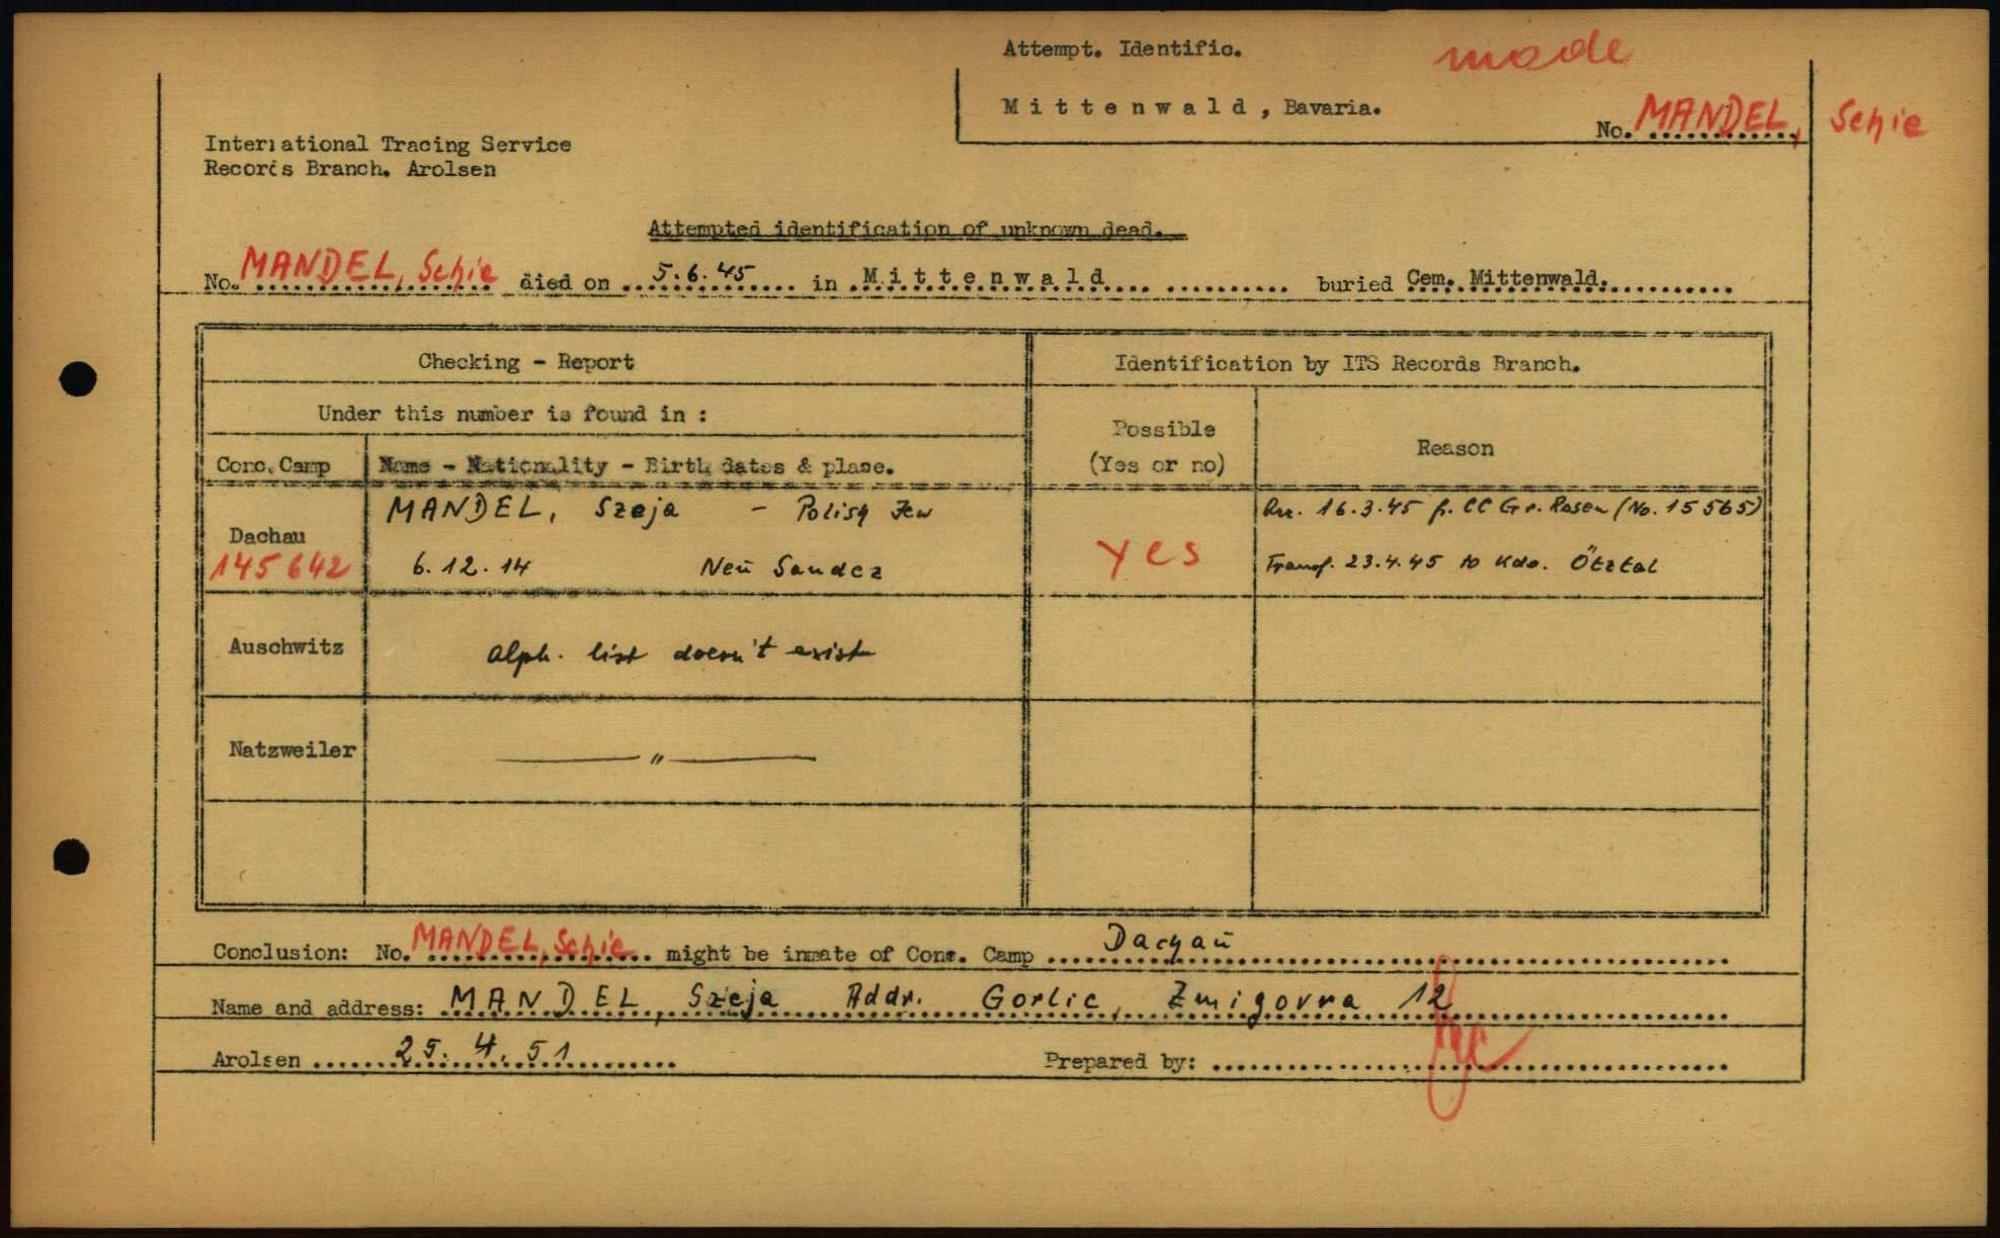 Attempt. Identific. made
Mittenwald, Bavaria.
No. MANDEL, Schie
International Tracing Service
Records Branch. Arolsen
Attempted identification of unknown dead.
No. MANDEL, Schie died on 5.6.45 in Mittenwald buried Cem. Mittenwald.
Checking - Report
Identification by ITS Records Branch.
Under this number is found in :
Possible
(Yes or no)
Reason
Conc. Camp
Name - Nationality - Birth dates & place.
Dachau
145642
MANDEL, Szeja - Polish Jew
6.12.14 Neu Sandez
yes
Arr. 16.3.45 fr. CC Gr. Rosen (No. 15565)
Transf. 23.4.45 to Kdo. Ötztal
Auschwitz
Alph. list doesn't exist
Natzweiler
— " —
Conclusion: No. MANDEL, Schie might be inmate of Conc. Camp Dachau
Name and address: MANDEL, Szeja Addr. Gorlic, Zmigovna 12
Arolsen 25. 4. 51
Prepared by: